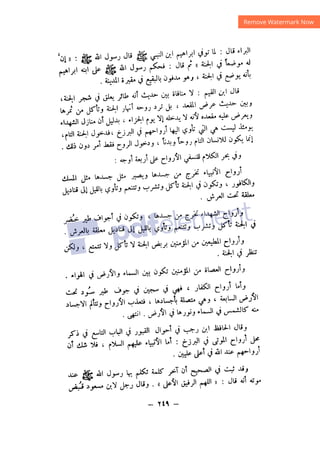 Remove Watermark Now
البراء قال : لما توفي ابراهيم ابن النبي ﷺ قال رسول الله ﷺ : « إن
له موضعاً في الجنة » ثم قال : فحكم رسول الله ﷺ على ابنه ابراهيم
بأنه يوضع في الجنة ، وهو مدفون بالبقيع في مقبرة المدينة .
قال ابن القيم : لا منافاة بين حديث أنه طائر يعلق في شجر الجنة،
وبين حديث عرض المقعد ، بل ترد روحه أنهار الجنة وتأكل من ثمرها
ويعرض عليه مقعده لأنه لا يدخله إلا يوم الجزاء ، بدليل أن منازل الشهداء
يومئذ ليست هي التي تأوي اليها أرواحهم في البرزخ ، فدخول الجنة التام،
إنما يكون للانسان التام روحاً وبدناً ، ودخول الروح فقط أمر دون ذلك .
وفي بحر الكلام للنسفي الأرواح على أربعة أوجه :
أرواح الأنبياء تخرج من جسدها ويصير مثل جسدها مثل المسك
والكافور ، وتكون في الجنة تأكل وتشرب وتتنعم وتأوي بالليل إلى قناديل
معلقة تحت العرش .
وأرواح الشهداء تخرج من جسدها ، وتكون في أجواف طير خضر
في الجنة تأكل وتشرب وتتنعم وتأوي بالليل إلى قناديل معلقة بالعرش
وأرواح المطيعين من المؤمنين بربض الجنة لا تأكل ولا تتمتع ، ولكن
تنظر في الجنة .
وأرواح العصاة من المؤمنين تكون بين السماء والأرض في الهواء .
وأما أرواح الكفار ، فهي في سجين في جوف طير سود تحت
الأرض السابعة ، وهي متصلة بأجسادها ، فتعذب الأرواح وتتألم الاجساد
منه كالشمس في السماء ونورها في الأرض . انتهى .
وقال الحافظ ابن رجب في أحوال القبور في الباب التاسع في ذكر
محل أرواح الموتى في البرزخ : أما الأنبياء عليهم السلام ، فلا شك أن
أرواحهم عند الله في أعلى عليين .
وقد ثبت في الصحيح أن آخر كلمة تكلم بها رسول الله ﷺ عند
موته أنه قال : « اللهم الرفيق الأعلى » . وقال رجل لابن مسعود قبض
– ٢٤٩ –